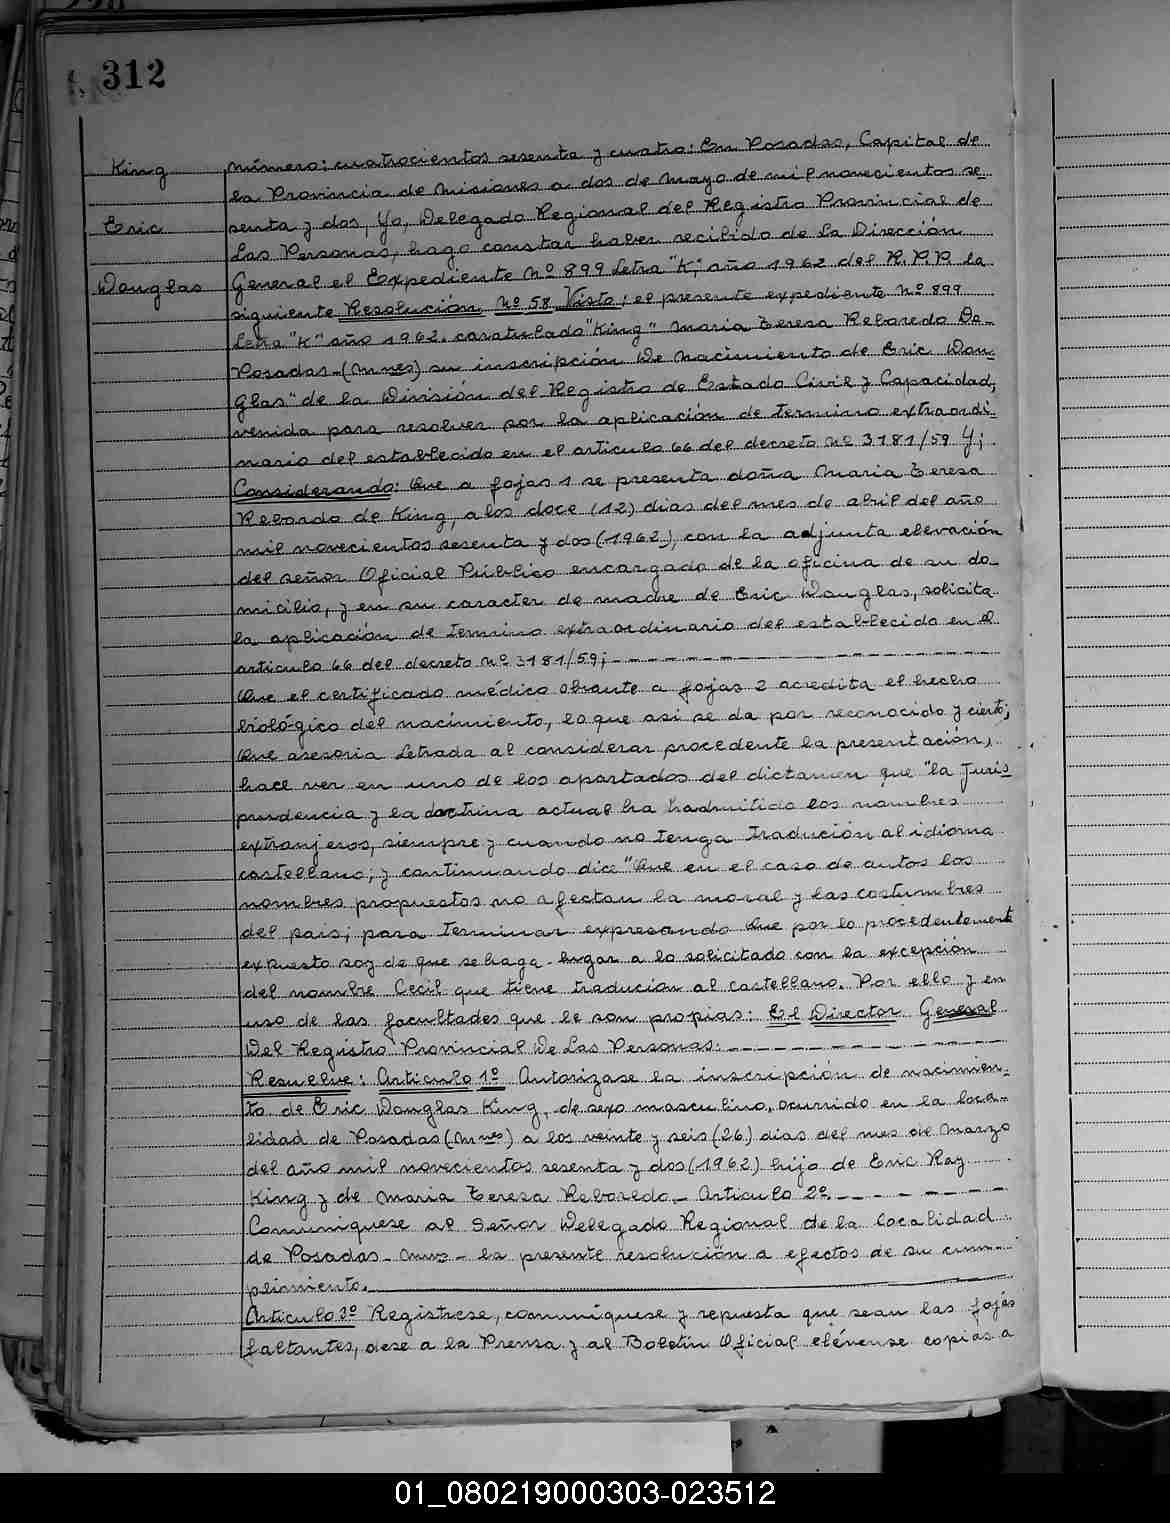 312
King
Eric
Douglas
Número: cuatrocientos sesenta y cuatro: En Posadas, Capital de
la Provincia de Misiones a dos de Mayo de mil novecientos se-
senta y dos, Yo, Delegado Regional del Registro Provincial de
Las Personas, hago constar haber recibido de la Dirección
General el Expediente Nº 899 Letra "K", año 1962 del R.P.P. la
siguiente Resolución Nº 58 Visto: el presente expediente Nº 899
Letra "K" año 1962. caratulado "King" Maria Teresa Reboredo De-
Posadas-(Mnes) su inscripción De Nacimiento de Eric Dou-
glas" de la División del Registro de Estado Civil y Capacidad,
venida para resolver por la aplicación de termino extraordi-
nario del establecido en el articulo 66 del decreto Nº 3181/59 Y;
Considerando: Que a fojas 1 se presenta doña Maria Teresa
Rebordo de King, a los doce (12) dias del mes de abril del año
mil novecientos sesenta y dos (1962), con la adjunta elevación
del señor Oficial Público encargado de la oficina de su do-
micilio, y en su caracter de madre de Eric Douglas, solicita
la aplicación de Termino extraordinario del establecido en el
articulo 66 del decreto Nº 3181/59;
Que el certificado médico obrante a fojas 2 acredita el hecho
biológico del nacimiento, lo que asi se da por reconocido y cierto;
Que asesoria Letrada al considerar procedente la presentación,
hace ver en uno de los apartados del dictamen que "la Juris-
prudencia y la doctrina actual ha hadmitido los nombres
extranjeros, siempre y cuando no tenga tradución al idioma
castellano; y continuando dice "Que en el caso de autos los
nombres propuestos no afectan la moral y las costumbres
del pais; para Terminar expresando Que por lo procedentemente
expuesto soy de que se haga lugar a lo solicitado con la excepción
del nombre Cecil que tiene tradución al castellano. Por ello y en
uso de las facultades que le son propias: El Director General
Del Registro Provincial De Las Personas:
Resuelve: Articulo 1º Autorizase la inscripción de nacimien-
to de Eric Douglas King, de sexo masculino, ocurrido en la loca-
lidad de Posadas (Mnes) a los veinte y seis (26) dias del mes de Marzo
del año mil novecientos sesenta y dos (1962) hijo de Eric Ray
King y de Maria Teresa Reboredo.- Articulo 2º.
Comuniquese al Señor Delegado Regional de la localidad
de Posadas - Mnes - la presente resolución a efectos de su cum-
plimiento.
Articulo 3º Registrese, comuníquese y repuesta que sean las fojas
faltantes, dese a la Prensa y al Boletín Oficial elévense copias a
01_080219000303-023512